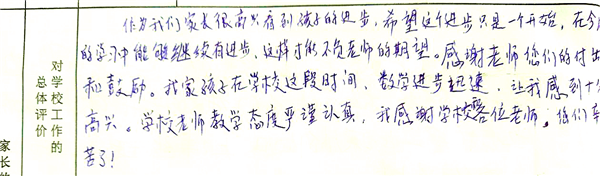 作为我们家长很高兴看到孩子的进步，希望这个进步只是一个开始，在今
的学习中能够继续有进步，这样才能不负老师的期望。感谢老师您们的付出
和鼓励。我家孩子在学校这段时间，数学进步迅速，让我感到十分
高兴。学校老师教学态度严谨认真，我感谢学校各位老师，您们辛
苦了！
对学校工作的
总体评价
家长的